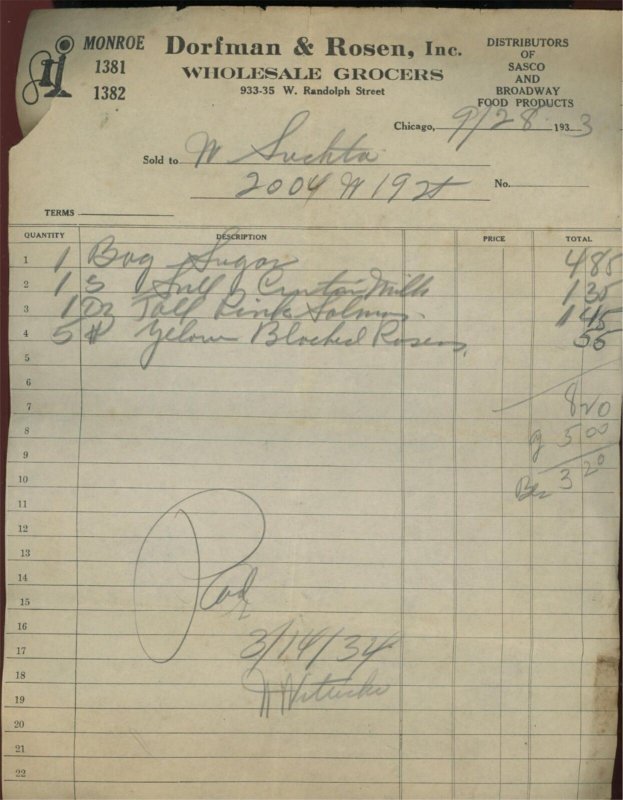 MONROE
1381
1382
Dorfman & Rosen, Inc.
WHOLESALE GROCERS
933-35 W. Randolph Street
DISTRIBUTORS
OF
SASCO
AND
BROADWAY
FOOD PRODUCTS
Chicago, 9/28 1933
Sold to W Suchta
2004 W 19 St No.
TERMS
QUANTITY DESCRIPTION PRICE TOTAL
1 1 Bag Sugar 485
2 1 S Milk 135
3 1 Dz Tall Pink Salmon 145
4 5 # Yelow Bleched Rasens 55
5
6
7 820
8 500
9
10 Bal 320
11
12
13
14
15 Paid
16
17 3/14/34
18
19
20
21
22